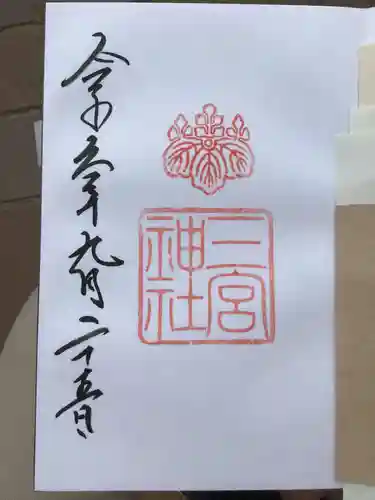 二宮
神社
令和元年九月二十五日